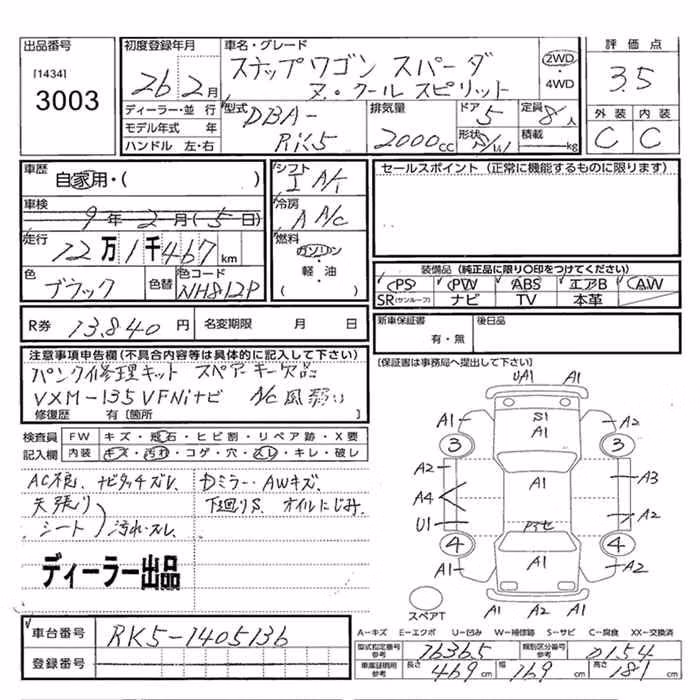 出品番号
[1434]
3003
初度登録年月
26年2月
車名・グレード
ステップワゴン スパーダ
Z・クールスピリット
2WD
・
4WD
評価点
3.5
外装 内装
C C
ディーラー・並行
モデル年式 年
ハンドル 左・右
型式
DBA-
RK5
排気量
2000cc
ドア
5
形状
定員
8人
積載
kg
車歴
自家用・( )
車検
9年2月(5日)
走行
12万1千467km
色
ブラック
色替
色コード
NH812P
シフト
I A/T
冷房
A A/C
燃料
ガソリン
・
軽油
セールスポイント(正常に機能するものに限ります)
装備品(純正品に限り〇印をつけてください)
PS PW ABS エアB AW
SR(サンルーフ) ナビ TV 本革
R券 13,840円 名変期限 月 日
新車保証書 有・無
後日品
[保証書は事務局へ提出して下さい]
注意事項申告欄(不具合内容等は具体的に記入して下さい)
パンク修理キット スペアーキー欠品
VXM-135VFNiナビ A/C風弱い
修復歴 有(箇所 )
検査員 FW キズ・飛石・ヒビ割・リペア跡・X要
記入欄 内装 キズ・汚れ・コゲ・穴・スレ・キレ・破レ
AC不良、ナビタッチズレ
天張り
シート
汚れ・スレ
Dミラー・AWキズ
下廻りS、オイルにじみ
ディーラー出品
UA1 A1
A1 S1 A1
A1
3 3
A2 A1 A3
A4
U1 A2
4 4
A1 A1 A1
スペアT
A1 A2 A1
車台番号 RK5-1405136
登録番号
A-キズ E-エクボ U-凹み W-補修跡 S-サビ C-腐食 XX-交換済
型式指定番号 参考 16365
類別区分番号 参考 0154
車庫証明用 参考 長さ 469cm 幅 169cm 高さ 181cm